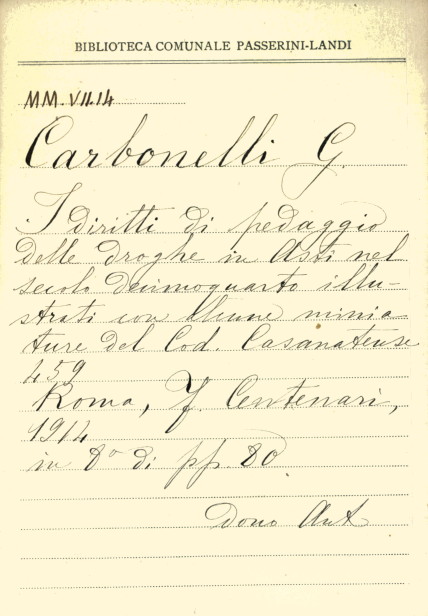 BIBLIOTECA COMUNALE PASSERINI-LANDI
MM.VII.14
Carbonelli G.
I diritti di pedaggio
delle droghe in Asti nel
secolo decimoquarto illu-
strati con alcune minia-
ture del Cod. Casanatense
459
Roma, F. Centenari,
1914
in 8° di pp. 80
Dono Aut